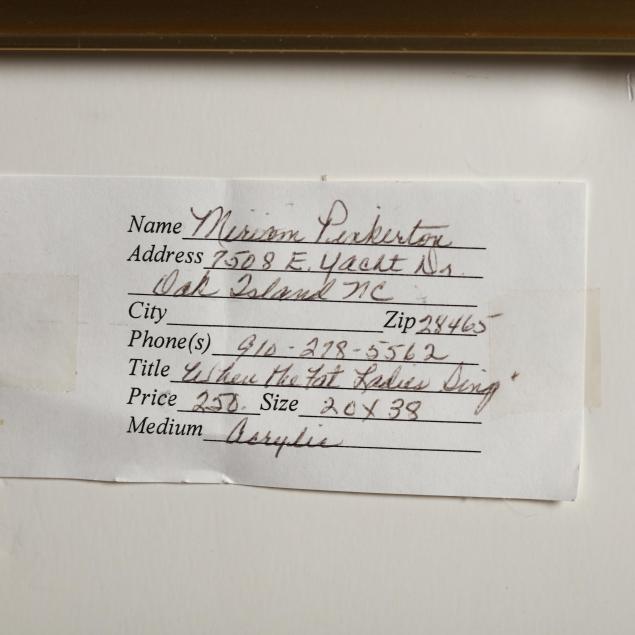 Name Miriam Pinkerton
Address 7508 E. Yacht Dr.
Oak Island NC
City Zip 28465
Phone(s) 910-278-5562
Title "When the Fat Ladies Sing"
Price 250. Size 20 X 38
Medium Acrylic